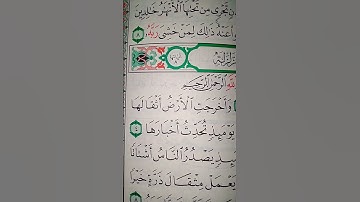 تَجْرِي مِن تَحْتِهَا ٱلْأَنْهَٰرُ خَٰلِدِينَ
عَنْهُ ذَٰلِكَ لِمَنْ خَشِيَ رَبَّهُۥ ٨
ٱلرَّحْمَٰنِ ٱلرَّحِيمِ
وَأَخْرَجَتِ ٱلْأَرْضُ أَثْقَالَهَا
يَوْمَئِذٍ تُحَدِّثُ أَخْبَارَهَا ٤
يَصْدُرُ ٱلنَّاسُ أَشْتَاتًا
يَعْمَلْ مِثْقَالَ ذَرَّةٍ خَيْرًا